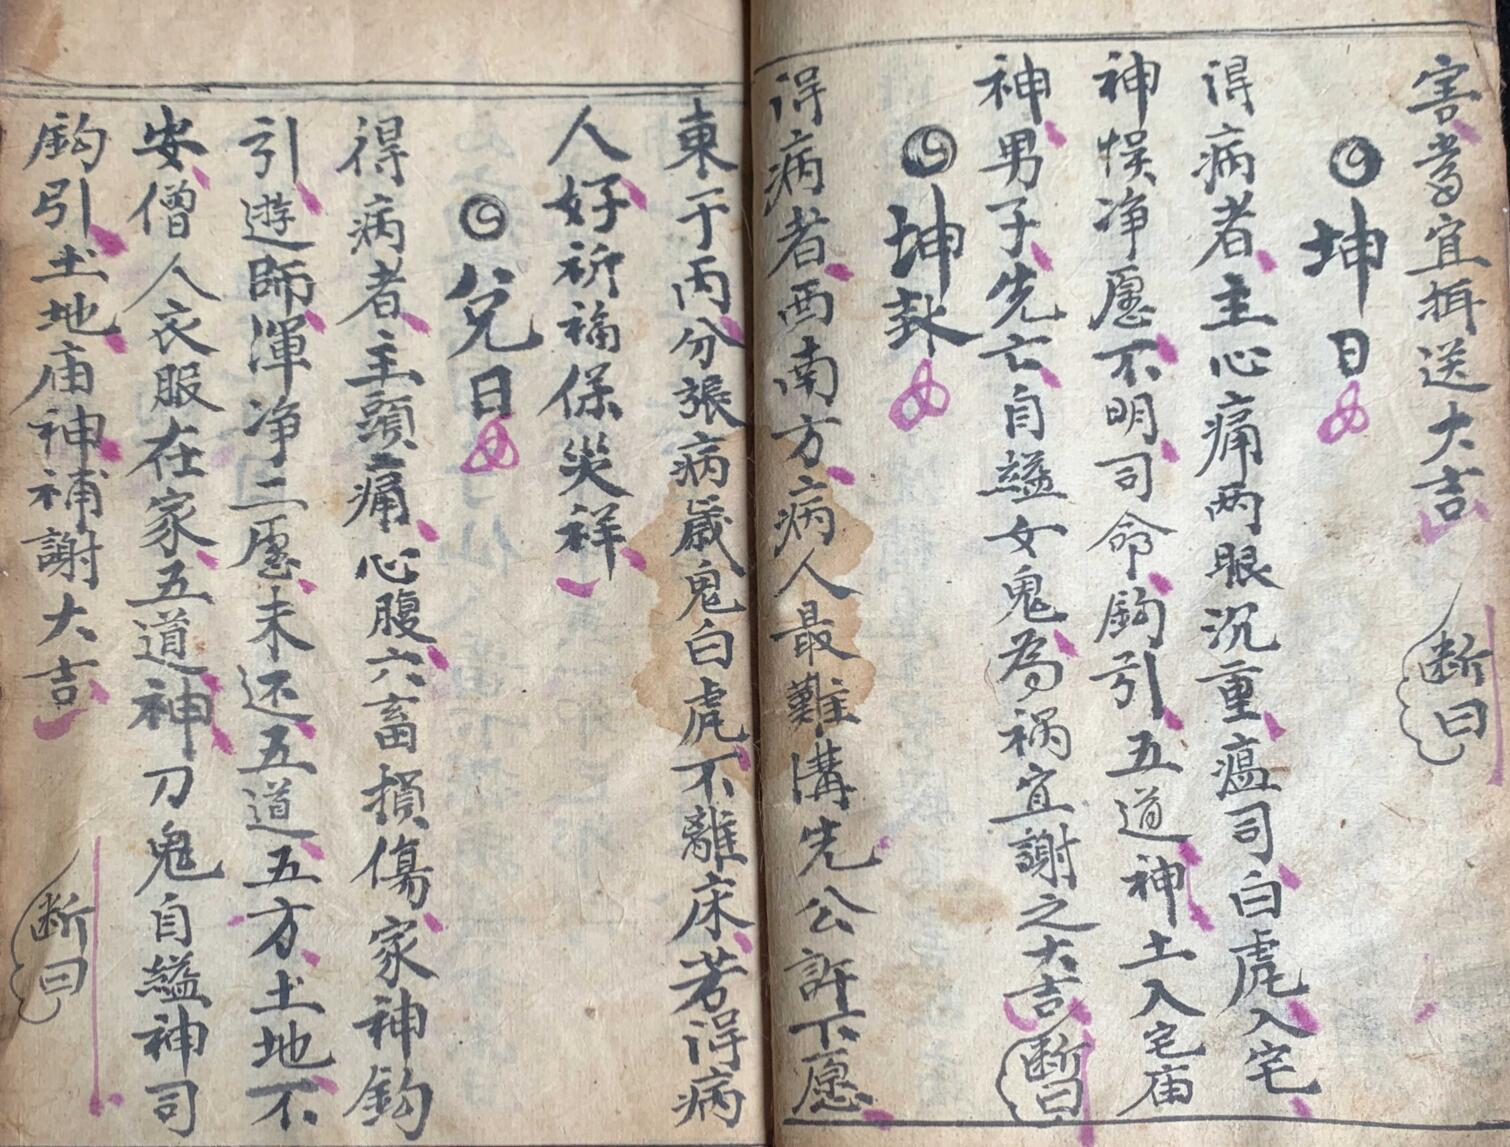 害者宜掛送大吉
断曰
坤日
淂病者主心痛两眼沉重瘟司白虎入宅
神悮净愿不明司命鈎引五道神土入宅庙
神男子先亡自縊女鬼為祸宜謝之大吉
断曰
坤卦
淂病者西南方病人最難溝先公許下愿
東于丙分張病歲鬼白虎不離床若淂病
人好祈福保災祥
兑日
得病者主頭痛心腹六畜損傷家神鈎
引遊師渾净二愿未还五道五方土地不
安僧人衣服在家五道神刀鬼自縊神司
鈎引土地庙神補謝大吉
断曰